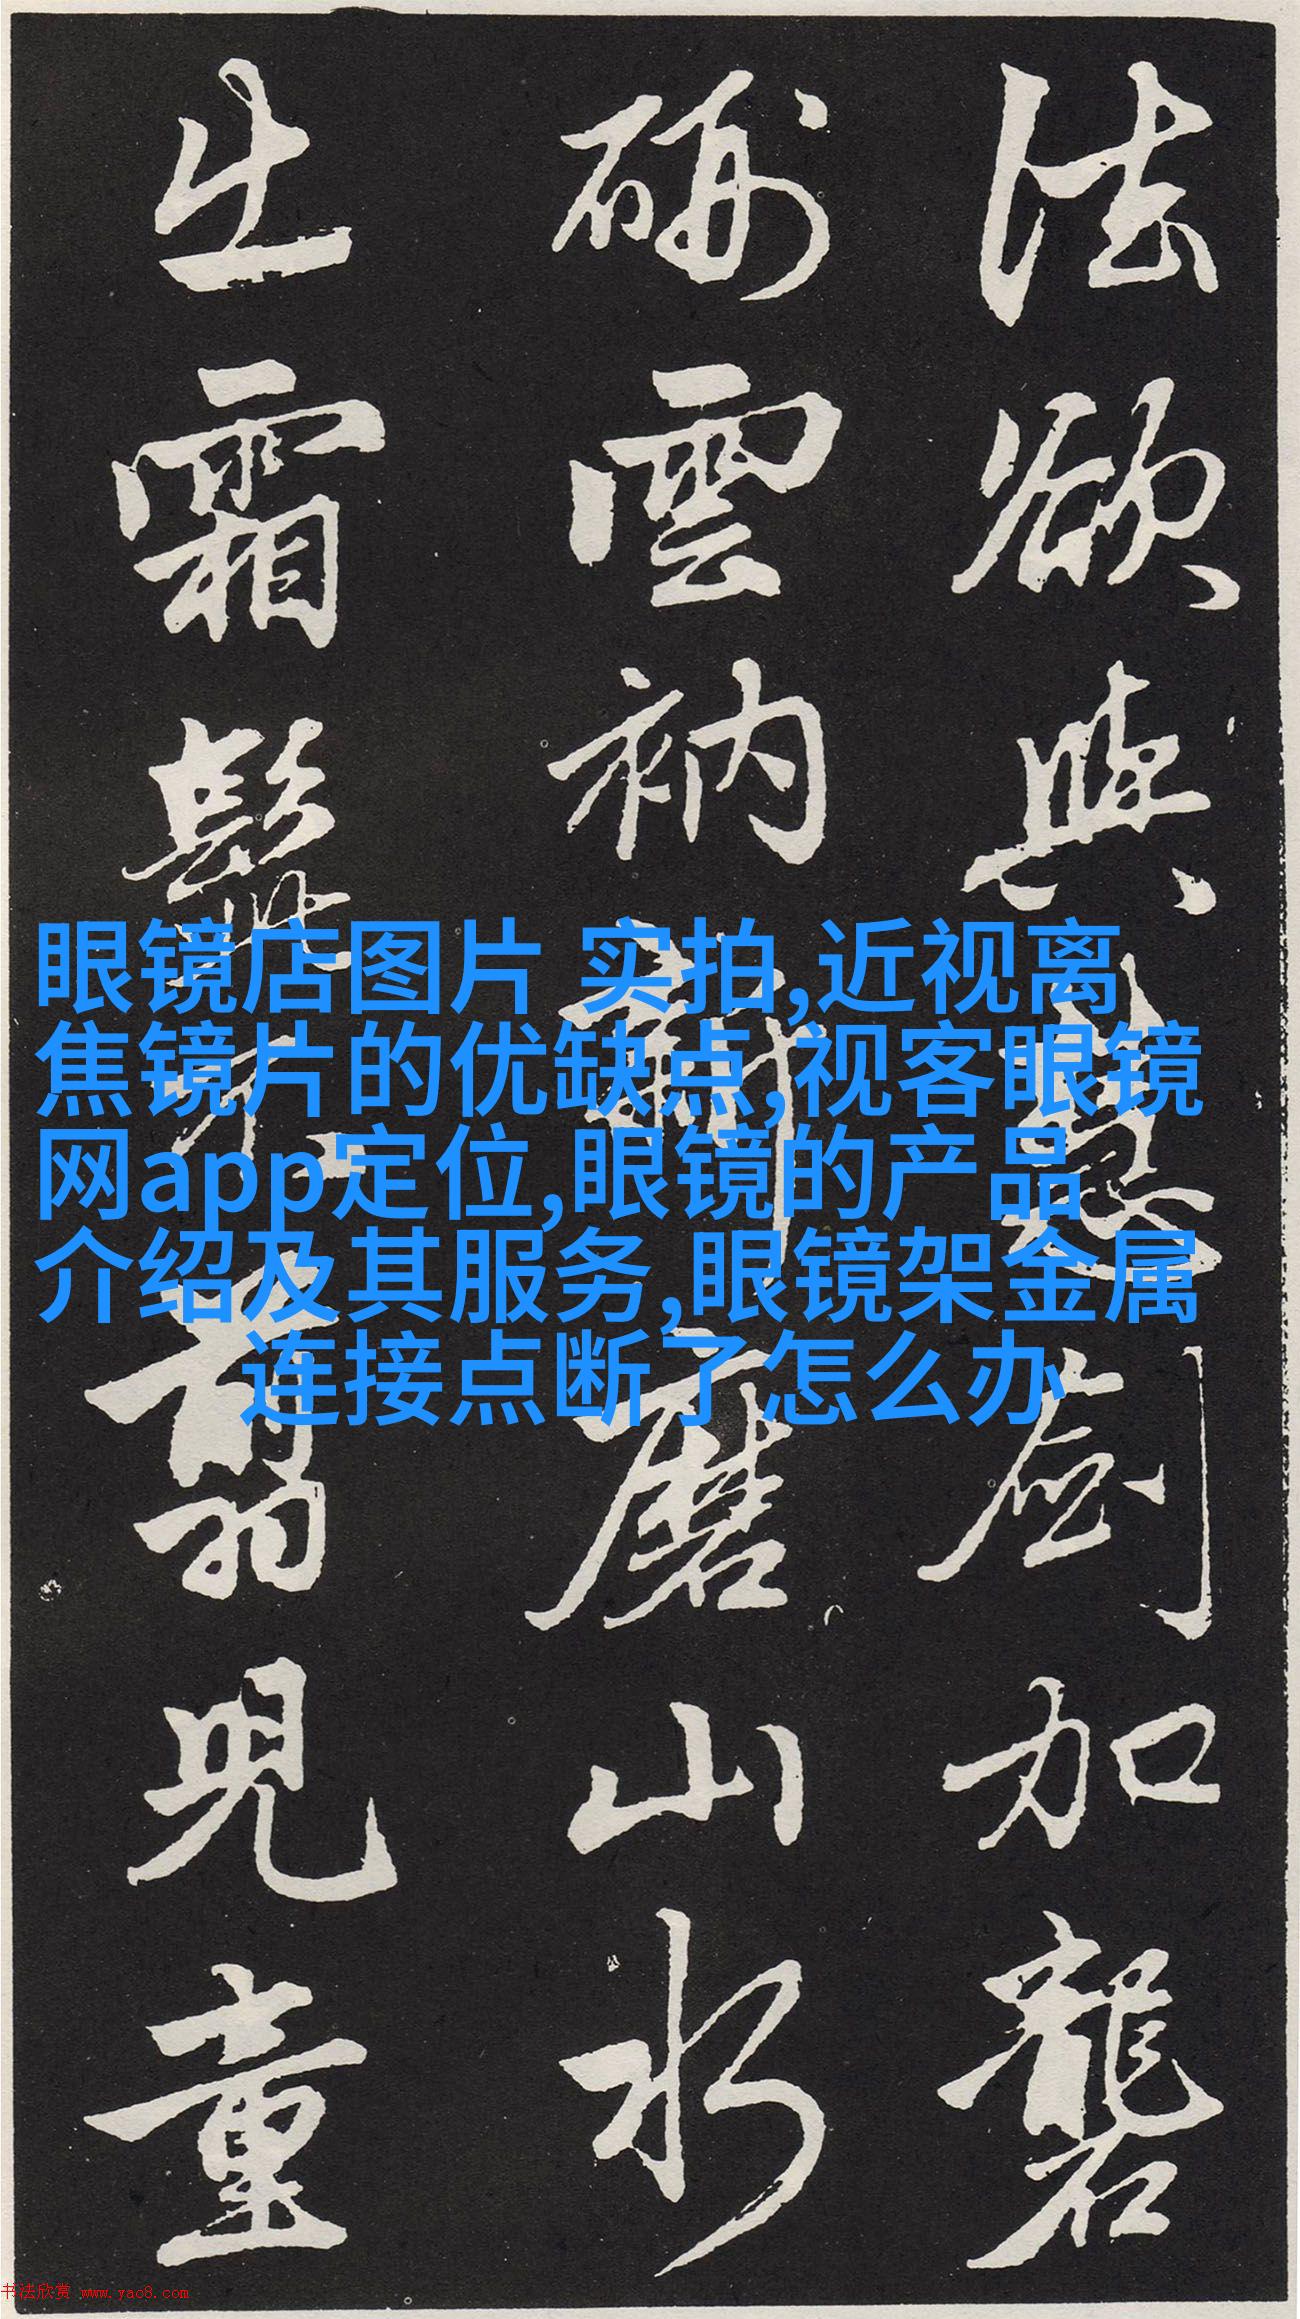 法欲與慧劍加礱
硎雲衲新磨山水
出霜髭不翦兒童
眼镜店图片 实拍,近视离
焦镜片的优缺点,视客眼镜
网app定位,眼镜的产品
介绍及其服务,眼镜架金属
连接点断了怎么办
书法欣赏 www.yac8.com